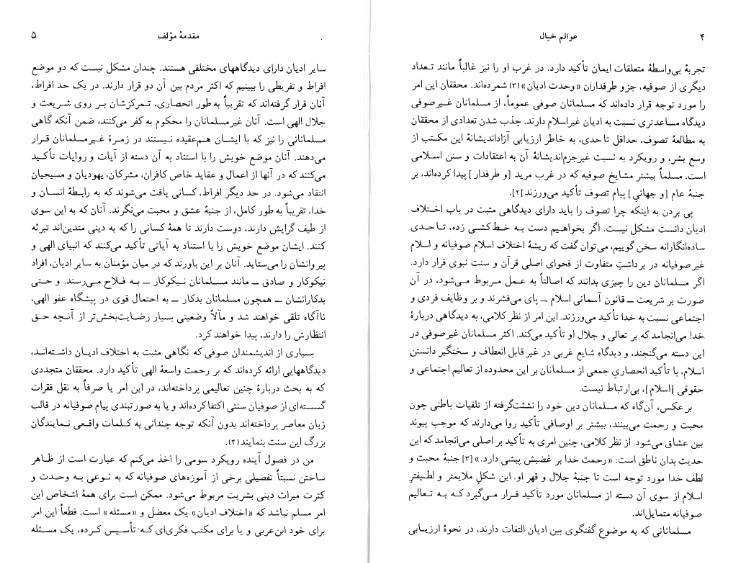 ۴ عوالم خیال
تجربهٔ بی‌واسطهٔ متعلقات ایمان تأکید دارد. در غرب او را نیز غالباً مانند تعداد
دیگری از صوفیه، جزو طرفداران «وحدت ادیان»[۳] شمرده‌اند. محققان این امر
را مورد توجه قرار داده‌اند که مسلمانان صوفی عموماً، از مسلمانان غیرصوفی
دیدگاه مساعدتری نسبت به ادیان غیراسلام دارند. جذب شدن تعدادی از محققان
به مطالعهٔ تصوف، حداقل تا حدی، به خاطر ارزیابی آزاداندیشانهٔ این مکتب از
وسع بشر، و رویکرد به نسبت غیرجزم‌اندیشانهٔ آن به اعتقادات و سنن اسلامی
است. مسلماً بیشتر مشایخ صوفیه که در غرب مرید [و طرفدار] پیدا کرده‌اند، بر
جنبهٔ عام [و جهانیِ] پیام تصوف تأکید می‌ورزند[۲].
پی بردن به اینکه چرا تصوف را باید دارای دیدگاهی مثبت در باب اختلاف
ادیان دانست مشکل نیست. اگر بخواهیم دست به خط‌کشی زده، تا حدی
ساده‌انگارانه سخن گوییم، می‌توان گفت که ریشهٔ اختلاف اسلام صوفیانه و اسلام
غیرصوفیانه در برداشتِ متفاوت از فحوای اصلی قرآن و سنت نبوی قرار دارد.
اگر مسلمانان دین را چیزی بدانند که اصالتاً به عمل مربوط می‌شود، در آن
صورت بر شریعت ـ قانون آسمانی اسلام ـ پای می‌فشرند و بر وظایف فردی و
اجتماعی نسبت به خدا تأکید می‌ورزند. این امر از نظر کلامی، به دیدگاهی دربارهٔ
خدا می‌انجامد که بر تعالی و جلال او تأکید می‌کند. اکثر مسلمانان غیرصوفی در
این دسته می‌گنجند، و دیدگاه شایع غربی در غیرقابل انعطاف و سختگیر دانستن
اسلام، با تأکید انحصاریِ جمعی از مسلمانان بر این محدوده از تعالیم اجتماعی و
حقوقی [اسلام]، بی‌ارتباط نیست.
بر عکس، آن‌گاه که مسلمانان دین خود را نشئت‌گرفته از تلقیات باطنی چون
محبت و رحمت می‌بینند، بیشتر بر اوصافی تأکید روا می‌دارند که موجب پیوند
بین عشاق می‌شود. از نظر کلامی، چنین امری به تأکید بر اصلی می‌انجامد که این
حدیث بدان ناطق است: «رحمت خدا بر غضبش پیشی دارد.»[۳] جنبهٔ محبت و
لطف خدا مورد توجه است تا جنبهٔ جلال و قهر او. این شکلِ ملایمتر و لطیفترِ
اسلام از سوی آن دسته از مسلمانان مورد تأکید قرار می‌گیرد که به تعالیم
صوفیانه متمایل‌اند.
مسلمانانی که به موضوع گفتگوی بین ادیان التفات دارند، در نحوهٔ ارزیابی
مقدمهٔ مؤلف ۵
سایر ادیان دارای دیدگاههای مختلفی هستند. چندان مشکل نیست که دو موضع
افراط و تفریطی را ببینیم که اکثر مردم بین آن دو قرار دارند. در یک حد افراط،
آنان قرار گرفته‌اند که تقریباً به طور انحصاری، تمرکزشان بر روی شریعت و
جلال الهی است. آنان غیرمسلمانان را محکوم به کفر می‌کنند، ضمن آنکه گاهی
مسلمانانی را نیز که با ایشان هم‌عقیده نیستند در زمرهٔ غیرمسلمانان قرار
می‌دهند. آنان موضع خویش را با استناد به آن دسته از آیات و روایات تأکید
می‌کنند که در آنها از اعمال و عقاید خاص کافران، مشرکان، یهودیان و مسیحیان
انتقاد می‌شود. در حد دیگر افراط، کسانی یافت می‌شوند که به رابطهٔ انسان و
خدا، تقریباً به طور کامل، از جنبهٔ عشق و محبت می‌نگرند. آنان که به این سوی
از طیف گرایش دارند، دوست دارند تا همهٔ کسانی را که به دینی متدین‌اند تبرئه
کنند. ایشان موضع خویش را با استناد به آیاتی تأکید می‌کنند که انبیای الهی و
پیروانشان را می‌ستاید. آنان بر این باورند که در میان مؤمنان به سایر ادیان، افراد
نیکوکار و صادق ـ مانند مسلمانان نیکوکار ـ به فلاح می‌رسند. و حتی
بدکارانشان ـ همچون مسلمانان بدکار ـ به احتمال قوی در پیشگاه عفو الهی،
ناآگاه تلقی خواهند شد و مآلاً وضعیتی بسیار رضایت‌بخش‌تر از آنچه حق
انتظارش را دارند، پیدا خواهند کرد.
بسیاری از اندیشمندان صوفی که نگاهی مثبت به اختلاف ادیان داشته‌اند،
دیدگاههایی ارائه کرده‌اند که بر رحمت واسعهٔ الهی تأکید دارد. محققان متجددی
که به بحث دربارهٔ چنین تعالیمی پرداخته‌اند، در این امر یا صرفاً به نقل فقرات
گسسته‌ای از صوفیان سنتی اکتفا کرده‌اند و یا به صورتبندی پیام صوفیانه در قالب
زبان معاصر پرداخته‌اند بدون آنکه توجه چندانی به کلمات واقعی نمایندگان
بزرگ این سنت بنمایند[۴].
من در فصول آینده رویکرد سومی را اخذ می‌کنم که عبارت است از ظاهر
ساختن نسبتاً تفصیلی برخی از آموزه‌های صوفیانه که به نوعی به وحدت و
کثرت میراث دینی بشریت مربوط می‌شود. ممکن است برای همهٔ اشخاص این
امر مسلم نباشد که «اختلاف ادیان» یک معضل و «مسئله» است. قطعاً این امر
برای خود ابن‌عربی و یا برای مکتب فکری‌ای که تأسیس کرده، یک مسئله